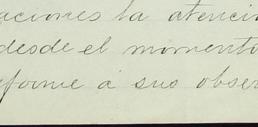 aciones la atenci
desde el momento
forme á sus obser